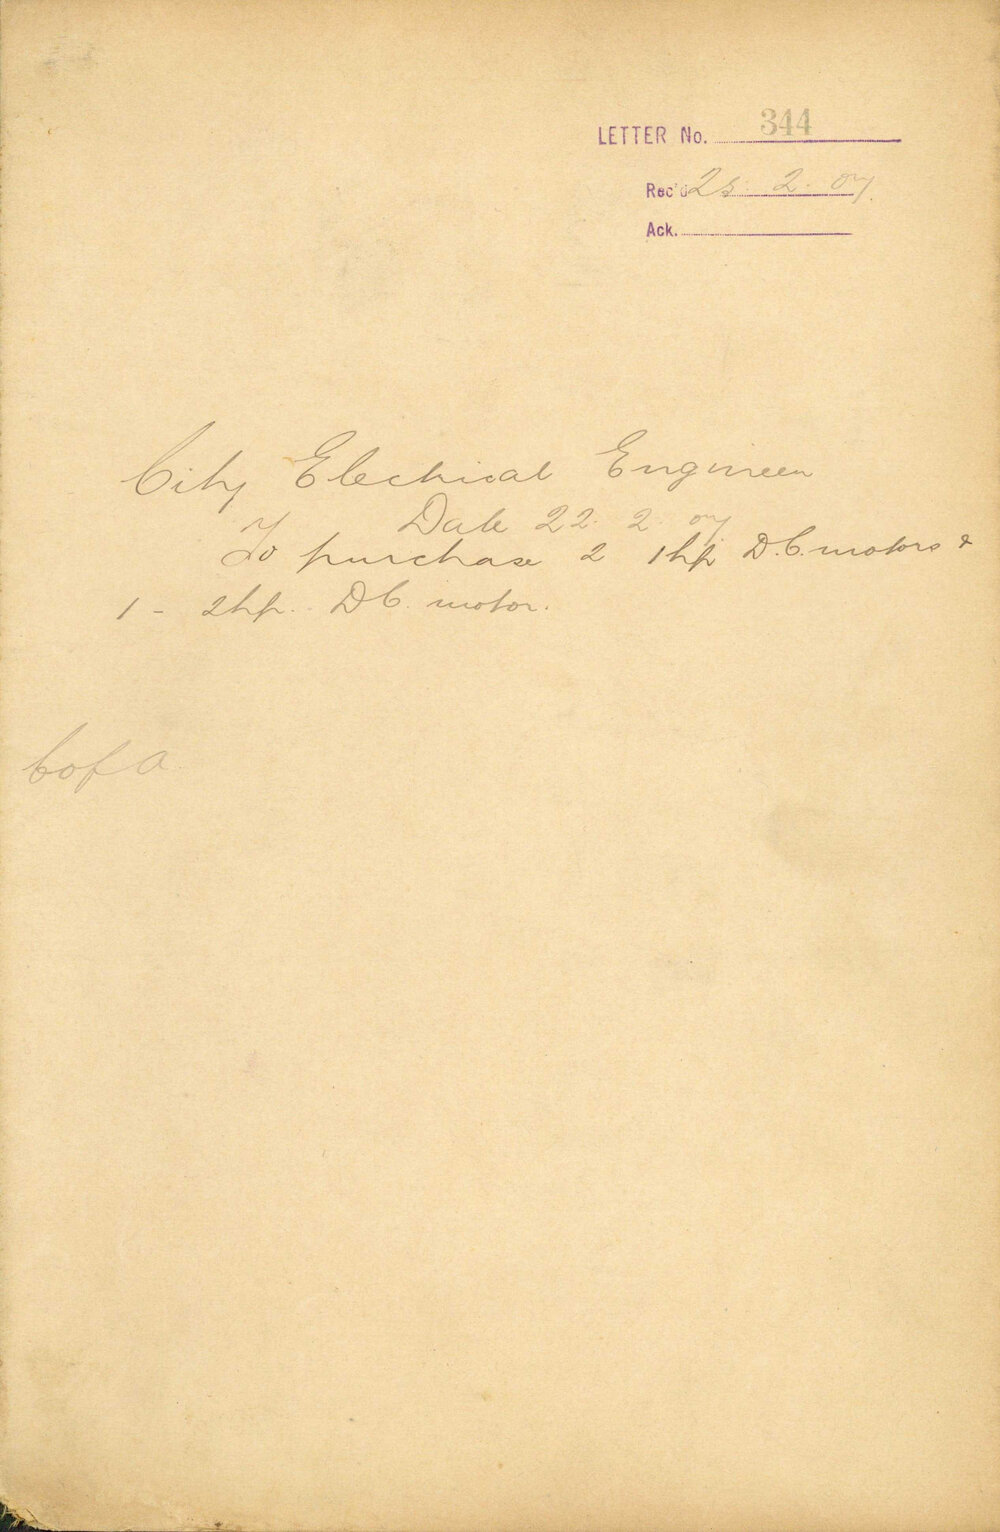 LETTER No. 344
Rec'd 25. 2. 07.
Ack.
City Electrical Engineer
Date 22. 2. 07
To purchase 2 1hp D.C. motors &
1 - 2hp. D C. motor.
C of A